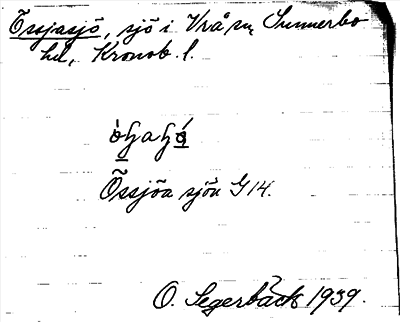 Össjasjö, sjö i Vrå sn, Sunnerbo
hd, Kronob. l.
Össjöa sjön G 14.
O. Segerbäck 1939.